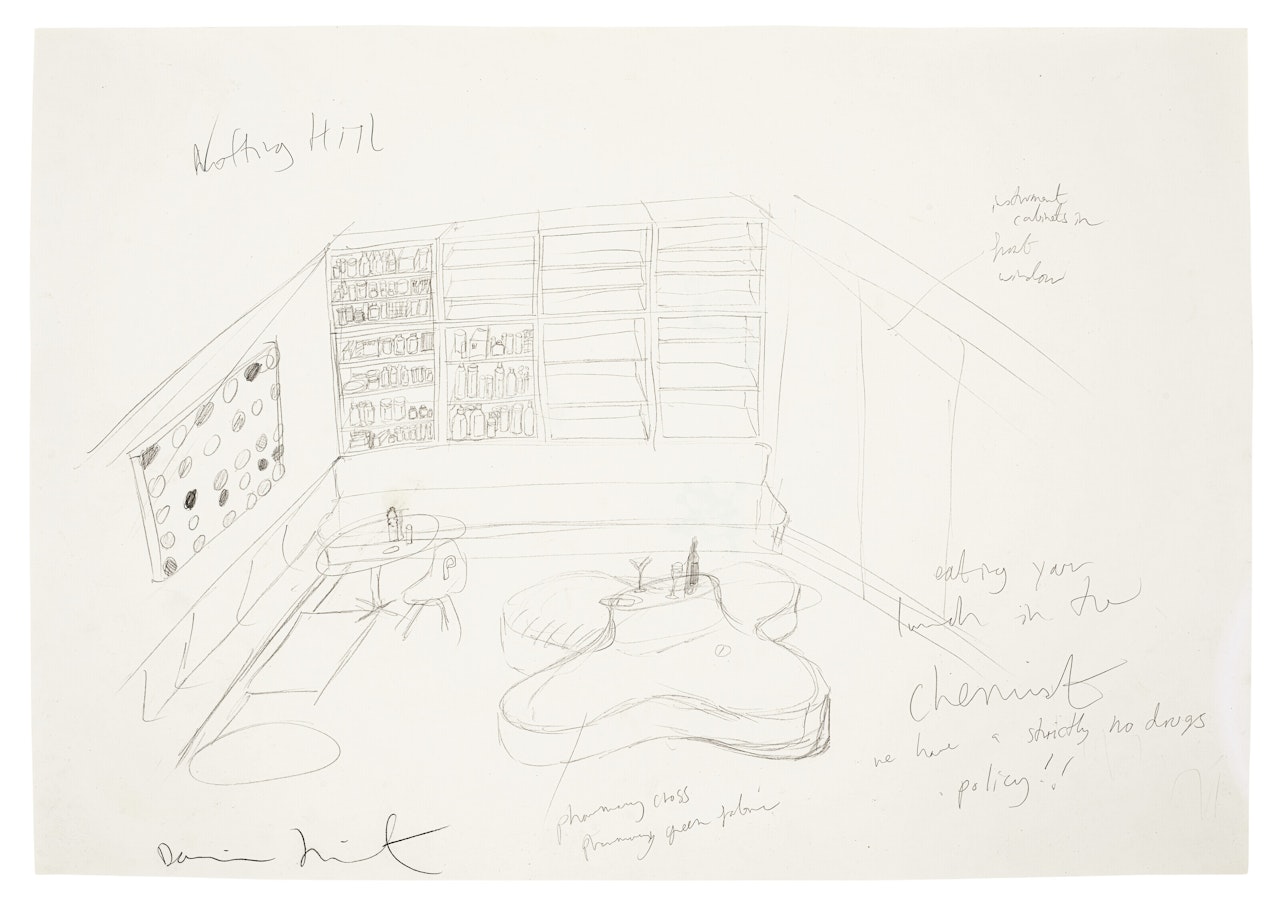 Notting Hill
instrument
cabinets in
front
window
P
eating your
lunch in the
chemist
we have a strictly no drugs
policy!!
pharmacy cross
pharmacy green fabric
Damien Hirst